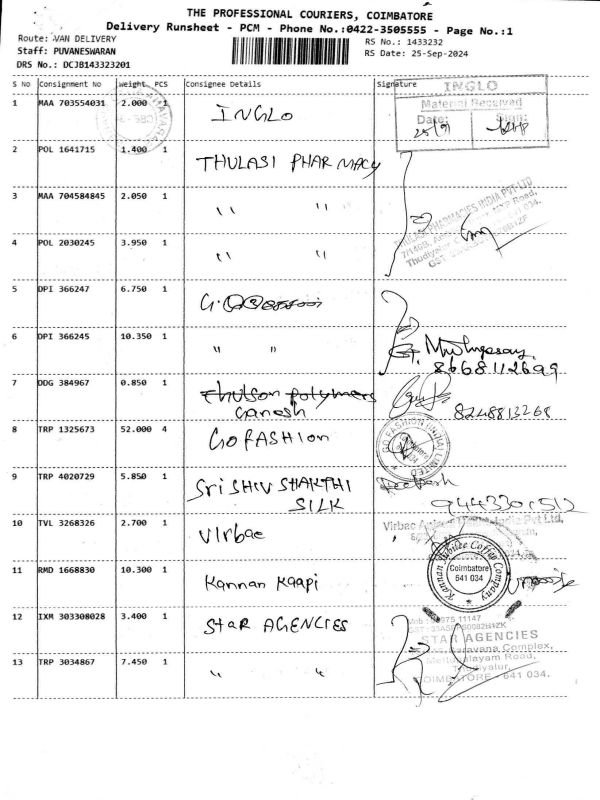 THE PROFESSIONAL COURIERS, COIMBATORE
Delivery Runsheet - PCM - Phone No.:0422-3505555 - Page No.:1
Route: VAN DELIVERY
RS No.: 1433232
Staff: PUVANESWARAN
RS Date: 25-Sep-2024
DRS No.: DCJB143323201
S No Consignment No Weight PCS Consignee Details Signature
INGLO
Material Received
Date: Sign:
25/9
1 MAA 703554031 2.000 1 INGLO
2 POL 1641715 1.400 1 THULASI PHARMACY
3 MAA 704584845 2.050 1 " "
THULASI PHARMACIES INDIA PVT LTD
4 POL 2030245 3.950 1 " "
5 DPI 366247 6.750 1
6 DPI 366245 10.350 1 " "
8668112699
7 DDG 384967 0.850 1 Thulson polymers
Ganesh
8248813268
8 TRP 1325673 52.000 4 GO FASHION
GO FASHION (INDIA) LIMITED
9 TRP 4020729 5.850 1 Sri SHIV SHAKTHI
SILK
9443301512
10 TVL 3268326 2.700 1 Virbac
Virbac India Pvt Ltd,
11 RMD 1668830 10.300 1 Kannan Kaapi
Kannan Jubilee Coffee Company
Coimbatore
641 034
12 IXM 303308028 3.400 1 Star AGENCIES
STAR AGENCIES
Saravana Complex,
Mettupalayam Road,
Thudiyalur,
COIMBATORE - 641 034.
13 TRP 3034867 7.450 1 " "